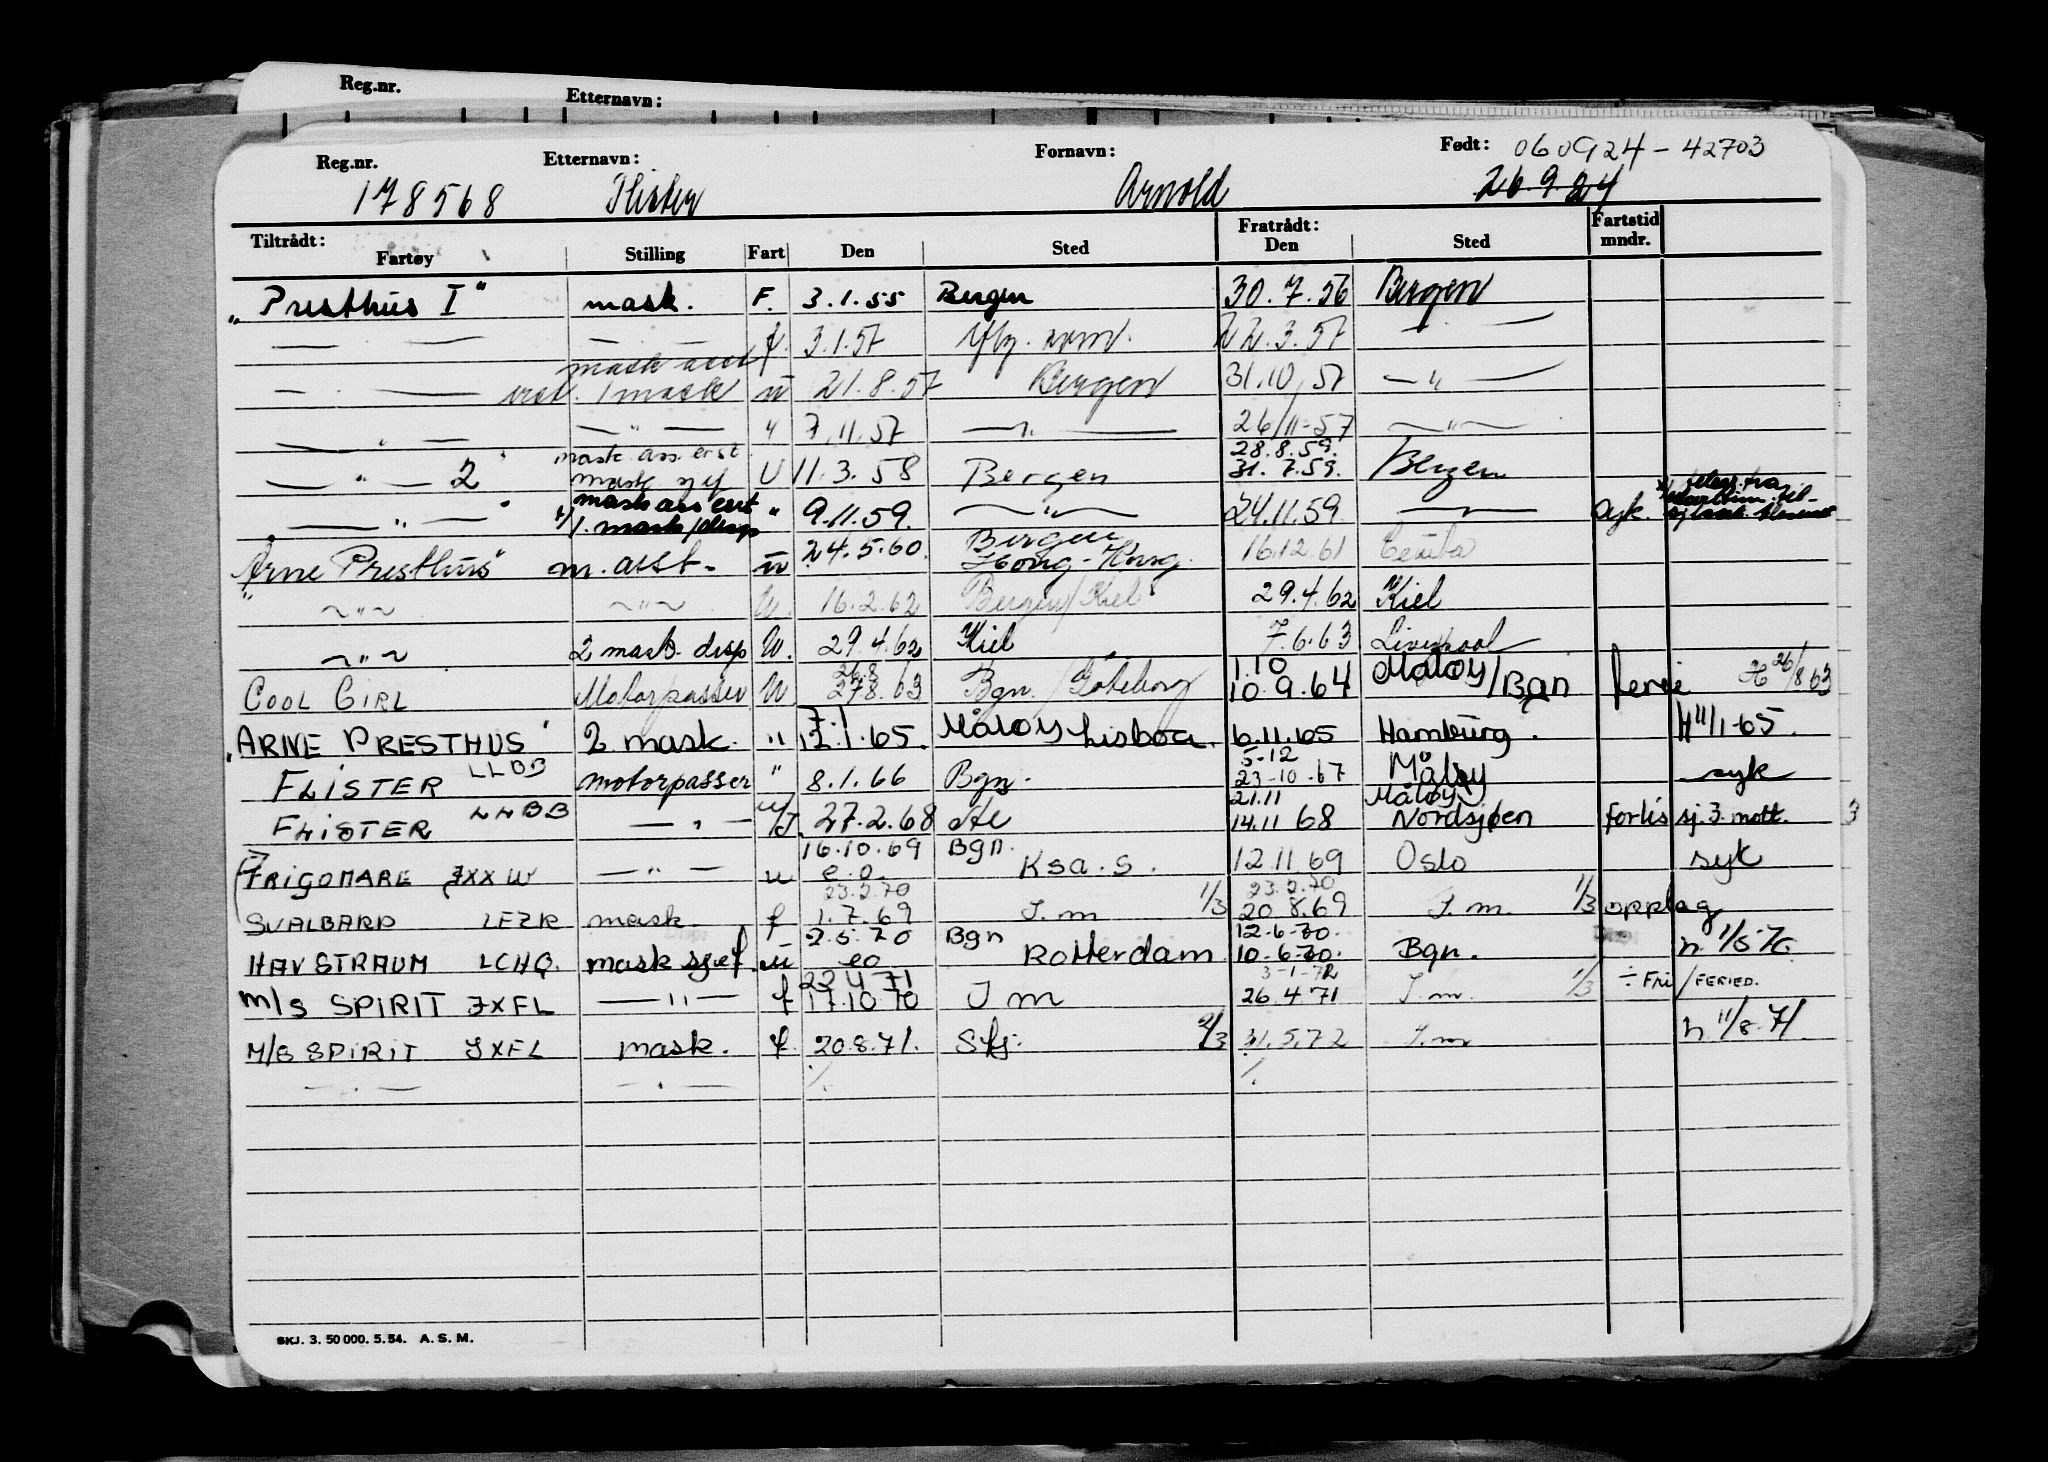 Reg.nr. Etternavn:
Reg.nr. Etternavn: Fornavn: Født: 060924-42703
178568 Flister Arnold 26.9.24
Tiltrådt: Fratrådt: Fartstid
Fartøy Stilling Fart Den Sted Den Sted mndr.
"Presthus I" mask. F. 3.1.55 Bergen 30.7.56 Bergen
— — — . — f. 3.1.57 22.3.57 — . —
mask asst
— . — 1 mask ü 21.8.57 Bergen 31.10.57 — " —
— " — — " — " 7.11.57 — " — 26/11-57 — " —
mask. ass. erst. 28.8.59.
— " — 2 mask sjef U 11.3.58 Bergen 31.7.59. Bergen
mask ass erst
— " — 1. mask/disp " 9.11.59. — " — 24.11.59 — syk.
Bergen
"Arne Presthus" m. asst. ü 24.5.60. Hong-Kong 16.12.61 Ceuta
— " — — " — U. 16.2.62 Bergen/Kiel 29.4.62 Kiel
— " — 2 mask. disp U. 29.4.62 Kiel 7.6.63 Liverpool
26.8 1.10
COOL GIRL Motorpasser U 27.8.63 Bgn./Göteborg 10.9.64 Måløy/Bgn ferie H 26/8 63
7.1
"ARNE PRESTHUS" 2 mask. " 12.1.65. Måløy Lisboa. 6.11.65 Hamburg. H 11/1-65.
5-12
FLISTER LLBB motorpasser " 8.1.66 Bgn. 23-10-67 Måløy syk
21.11 Måløy
FLISTER LLBB — " — U/J 27.2.68 14.11 68 Nordsjøen forlis sj. 3. mott. 3
16.10.69 Bgn.
FRIGOMARE JXXW — " — u e.o. Ksa.S. 12.11.69 Oslo syk
23.2.70 23.2.70
SVALBARD LEZR mask. f 1.7.69 J.m 1/3 20.8.69 J.m. 1/3 opplag
2.5.70 Bgn 12-6-70.
HAVSTRAUM LCHQ. mask sjef. ü eo Rotterdam 10-6-70. Bgn. n 1/5 70
22 4 71 3-1-72
M/S SPIRIT JXFL — " — f 17.10.70 J m 26.4.71 J.m. 1/3 ÷ Fri/FERIED.
M/S SPIRIT JXFL mask. f. 20.8.71. Sfj. 2/3 31.5.72 J.m n. 11/8.71.
— . — — . — %. %.
SKJ. 3. 50 000. 5. 54. A. S. M.